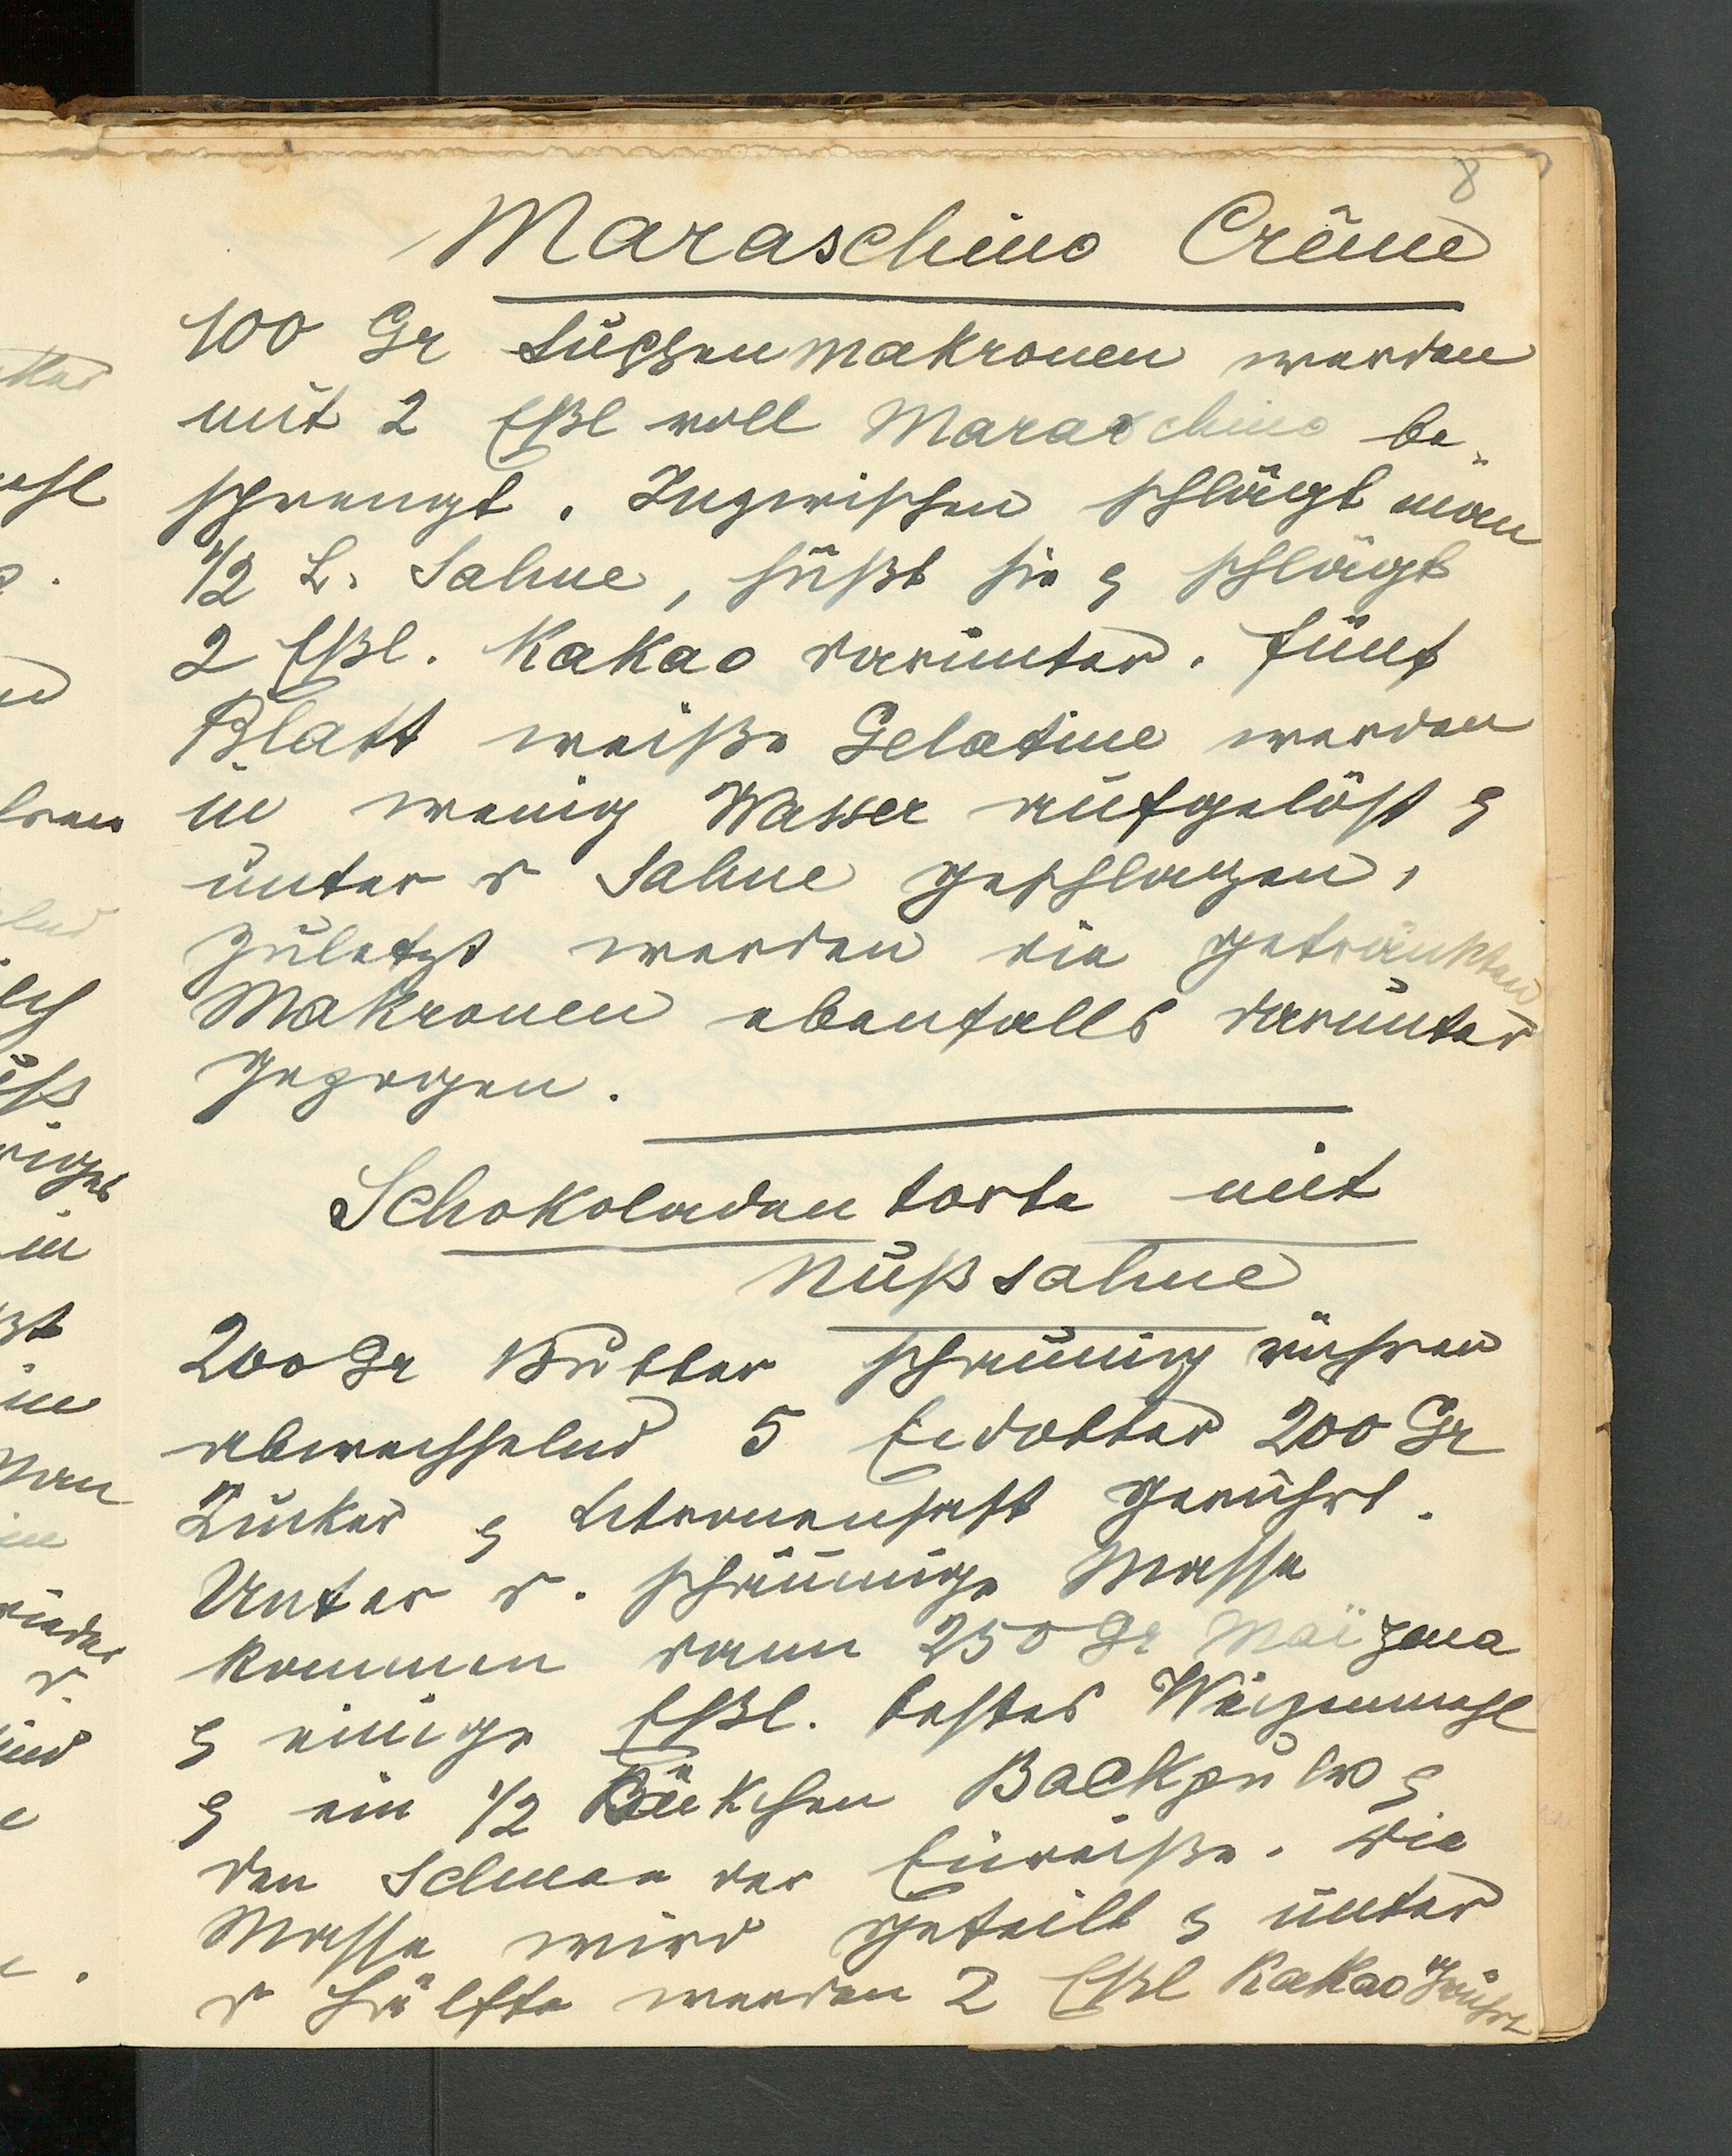 8
Maraschino Crême
100 Gr Suchsenmakronen werden
mit 2 Eßl voll Maraschino be-
sprengt. Inzwischen schlägt man
1/2 L. Sahne, süßt sie & schlägt
2 Eßl. Kakao darunter. Fünf
Blatt weiße Gelatine werden
in wenig Wasser aufgelöst &
unter d Sahne geschlagen,
zuletzt werden die getränkten
Makronen ebenfalls darunter
gezogen.
Schokoladentorte mit
Nußsahne
200 Gr Butter schaumig rühren
abwechselnd 5 Eidotter 200 Gr
Zucker & Citronensaft gerührt.
Unter d. schaumige Masse
kommen dann 250 Gr Maïzena
& einige Eßl. bestes Weizenmehl
& ein 1/2 Päckchen Backpulv &
den Schnee der Eiweiße. Die
Masse wird geteilt & unter
d Hälfte werden 2 Eßl Kakao grührt